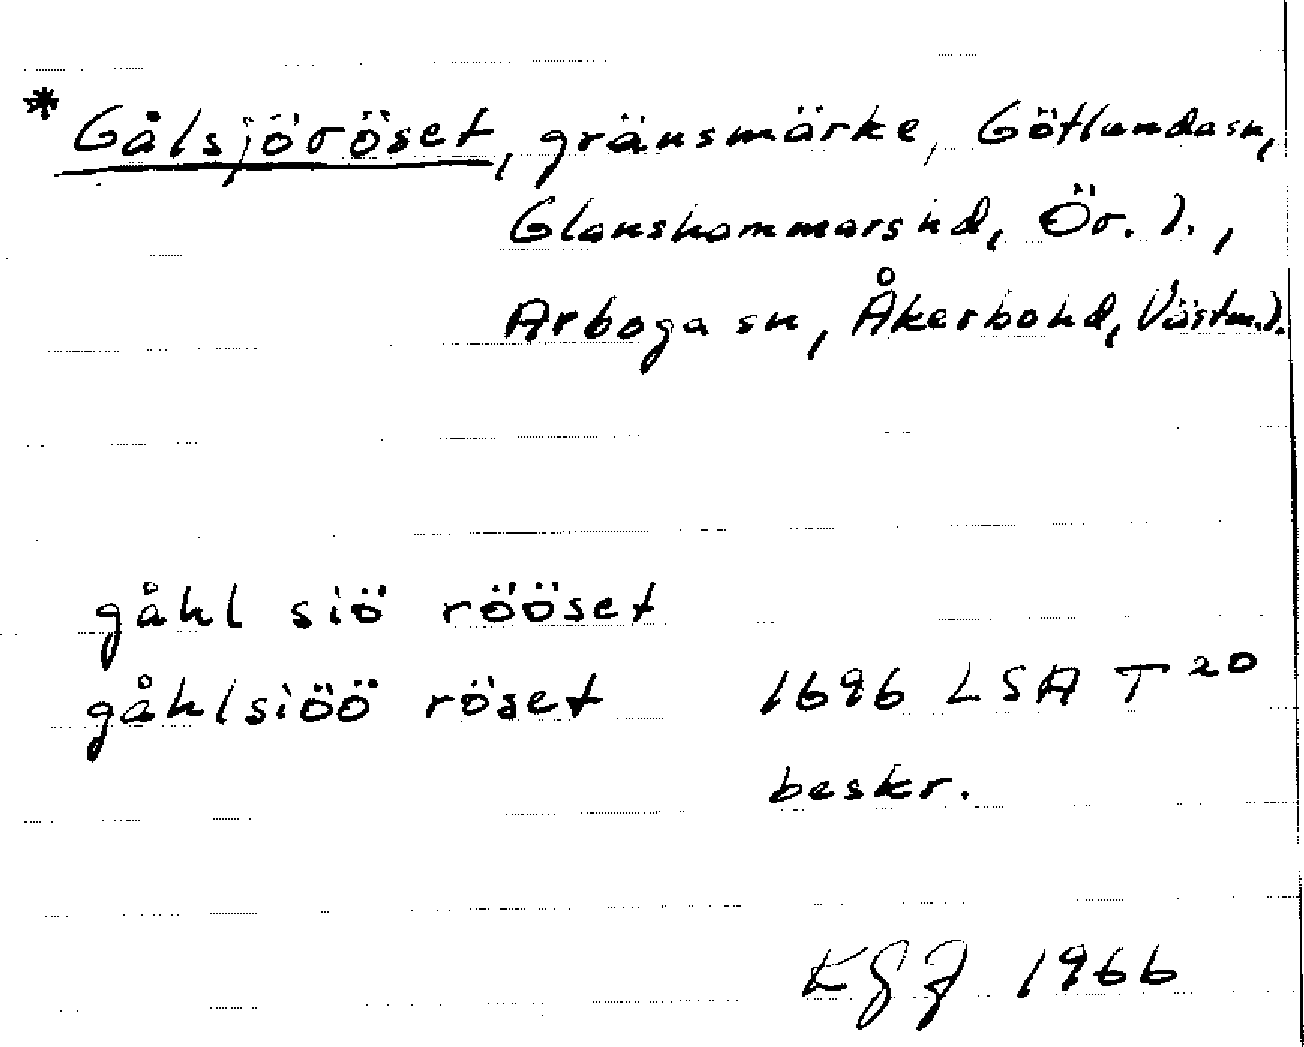 * Gålsjöröset, gränsmärke, Götlunda sn,
Glanshammars hd, Ör. l.,
Arboga sn, Åkerbo hd, Västm. l.
gåhl siö rööset
gåhlsiöö röset 1696 LSA T 20
beskr.
KGJ 1966